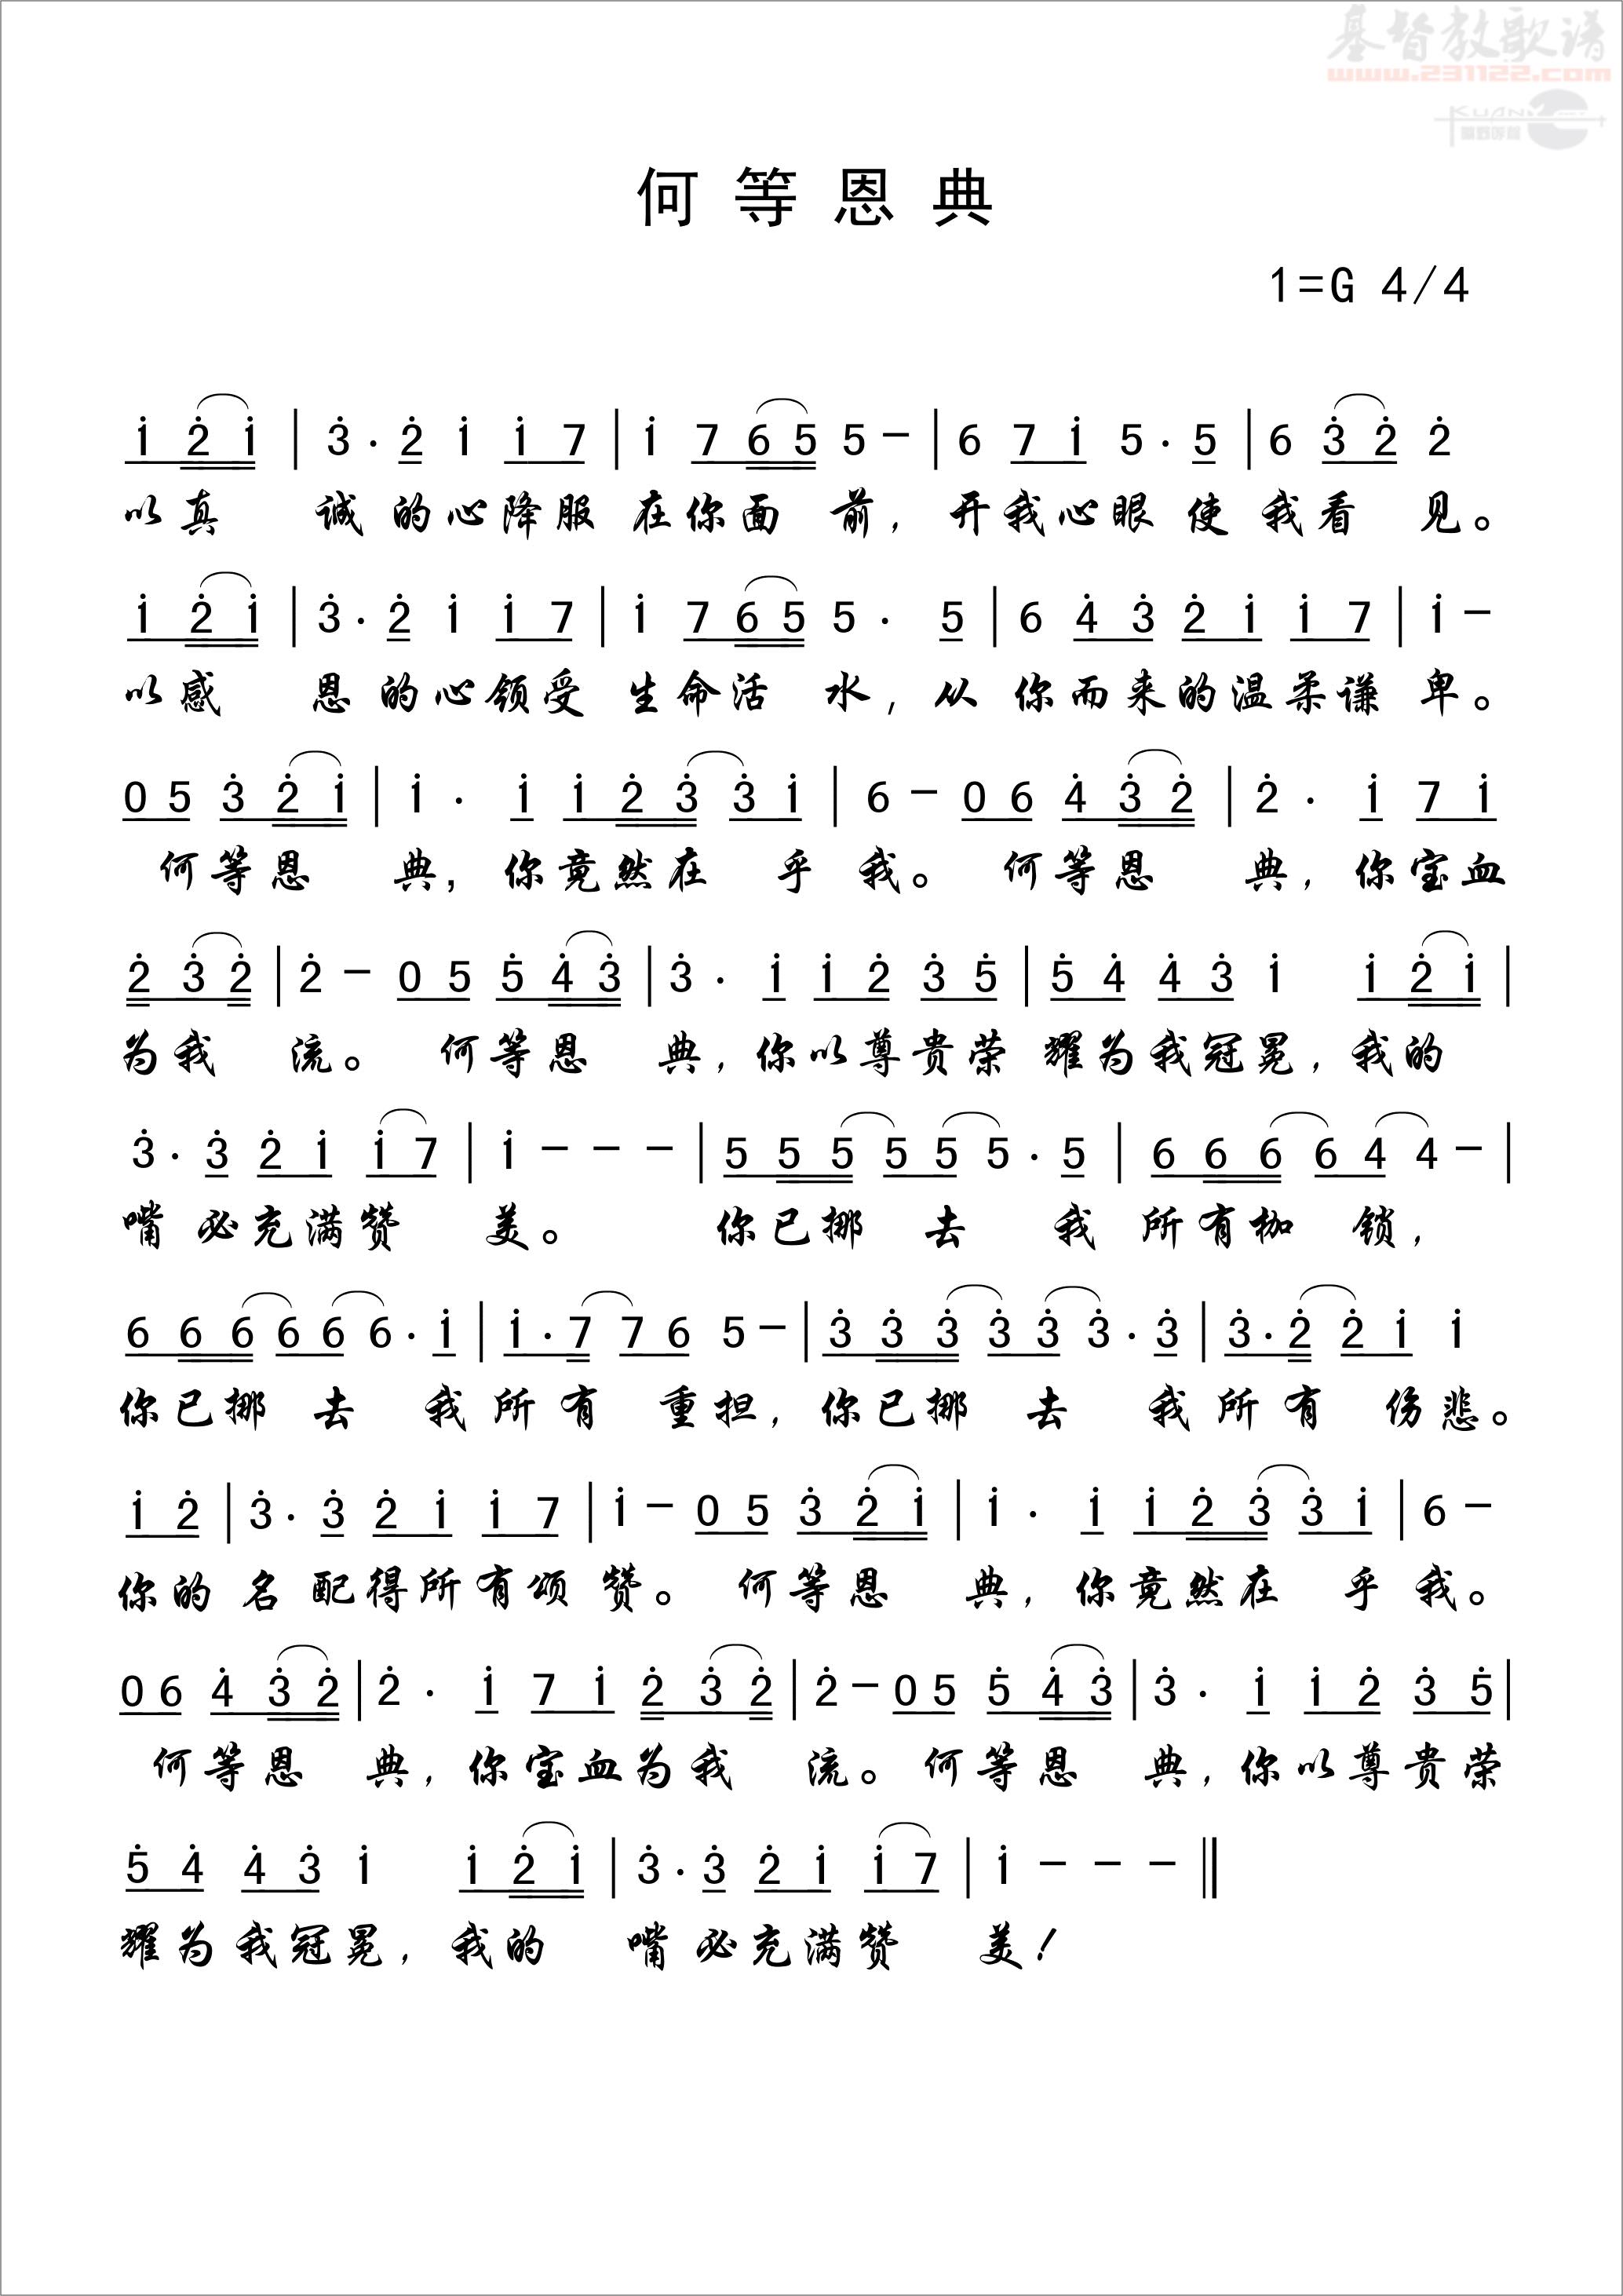 基督教歌谱
www.231122.com
KUANYE
旷野呼声
何等恩典
1=G 4/4
i 2̇ i | 3̇ · 2̇ i i 7 | i 7 6 5 5 - | 6 7 i 5 · 5 | 6 3̇ 2̇ 2̇
以真 诚 的心降服 在你面 前, 开我心眼 使 我看 见。
i 2̇ i | 3̇ · 2̇ i i 7 | i 7 6 5 5 · 5 | 6 4̇ 3̇ 2̇ i i 7 | i -
以感 恩 的心领受 生命活 水, 从 你而来的温柔谦 卑。
0 5 3̇ 2̇ i | i · i i 2̇ 3̇ 3̇ i | 6 - 0 6 4̇ 3̇ 2̇ | 2̇ · i 7 i
何等恩 典, 你竟然在 乎 我。 何等恩 典, 你宝血
2̇ 3̇ 2̇ | 2̇ - 0 5 5̇ 4̇ 3̇ | 3̇ · i i 2̇ 3̇ 5̇ | 5̇ 4̇ 4̇ 3̇ i i 2̇ i |
为我 流。 何等恩 典, 你以尊贵荣 耀为我冠冕, 我的
3̇ · 3̇ 2̇ i i 7 | i - - - | 5 5 5 5 5 5 · 5 | 6 6 6 6 4 4 - |
嘴 必充满赞 美。 你已挪 去 我 所有枷 锁,
6 6 6 6 6 6 · i | i · 7 7 6 5 - | 3̇ 3̇ 3̇ 3̇ 3̇ 3̇ · 3̇ | 3̇ · 2̇ 2̇ i i
你已挪 去 我 所 有 重担, 你已挪 去 我 所 有 伤悲。
i 2̇ | 3̇ · 3̇ 2̇ i i 7 | i - 0 5 3̇ 2̇ i | i · i i 2̇ 3̇ 3̇ i | 6 -
你的 名 配得所有颂 赞。 何等恩 典, 你竟然在 乎 我。
0 6 4̇ 3̇ 2̇ | 2̇ · i 7 i 2̇ 3̇ 2̇ | 2̇ - 0 5 5̇ 4̇ 3̇ | 3̇ · i i 2̇ 3̇ 5̇ |
何等恩 典, 你宝血为我 流。 何等恩 典, 你以尊贵荣
5̇ 4̇ 4̇ 3̇ i i 2̇ i | 3̇ · 3̇ 2̇ i i 7 | i - - - ‖
耀为我冠冕, 我的 嘴 必充满赞 美!